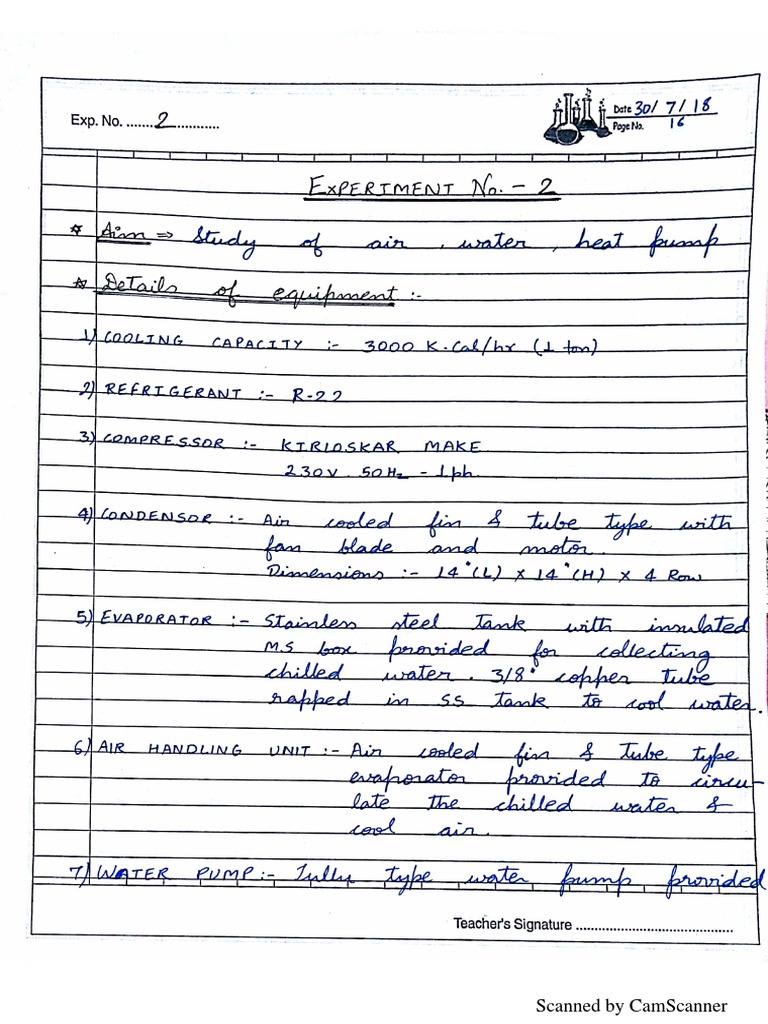 Exp. No. ....... 2 ...........
Date 30/7/18
Page No. 16
EXPERIMENT No. - 2
* Aim ⇒ Study of air, water, heat pump
* Details of equipment :-
1) COOLING CAPACITY :- 3000 K.Cal/hr (1 ton)
2) REFRIGERANT :- R-22
3) COMPRESSOR :- KIRLOSKAR MAKE
230V. 50Hz - 1ph.
4) CONDENSOR :- Air cooled fin & tube type with
fan blade and motor.
Dimensions :- 14"(L) x 14"(H) x 4 Row
5) EVAPORATOR :- Stainless steel tank with insulated
M.S box provided for collecting
chilled water. 3/8" copper tube
rapped in SS tank to cool water.
6) AIR HANDLING UNIT :- Air cooled fin & tube type
evaporator provided to circu-
late the chilled water &
cool air.
7) WATER PUMP :- Tullu type water pump provided
Teacher's Signature .......................................
Scanned by CamScanner